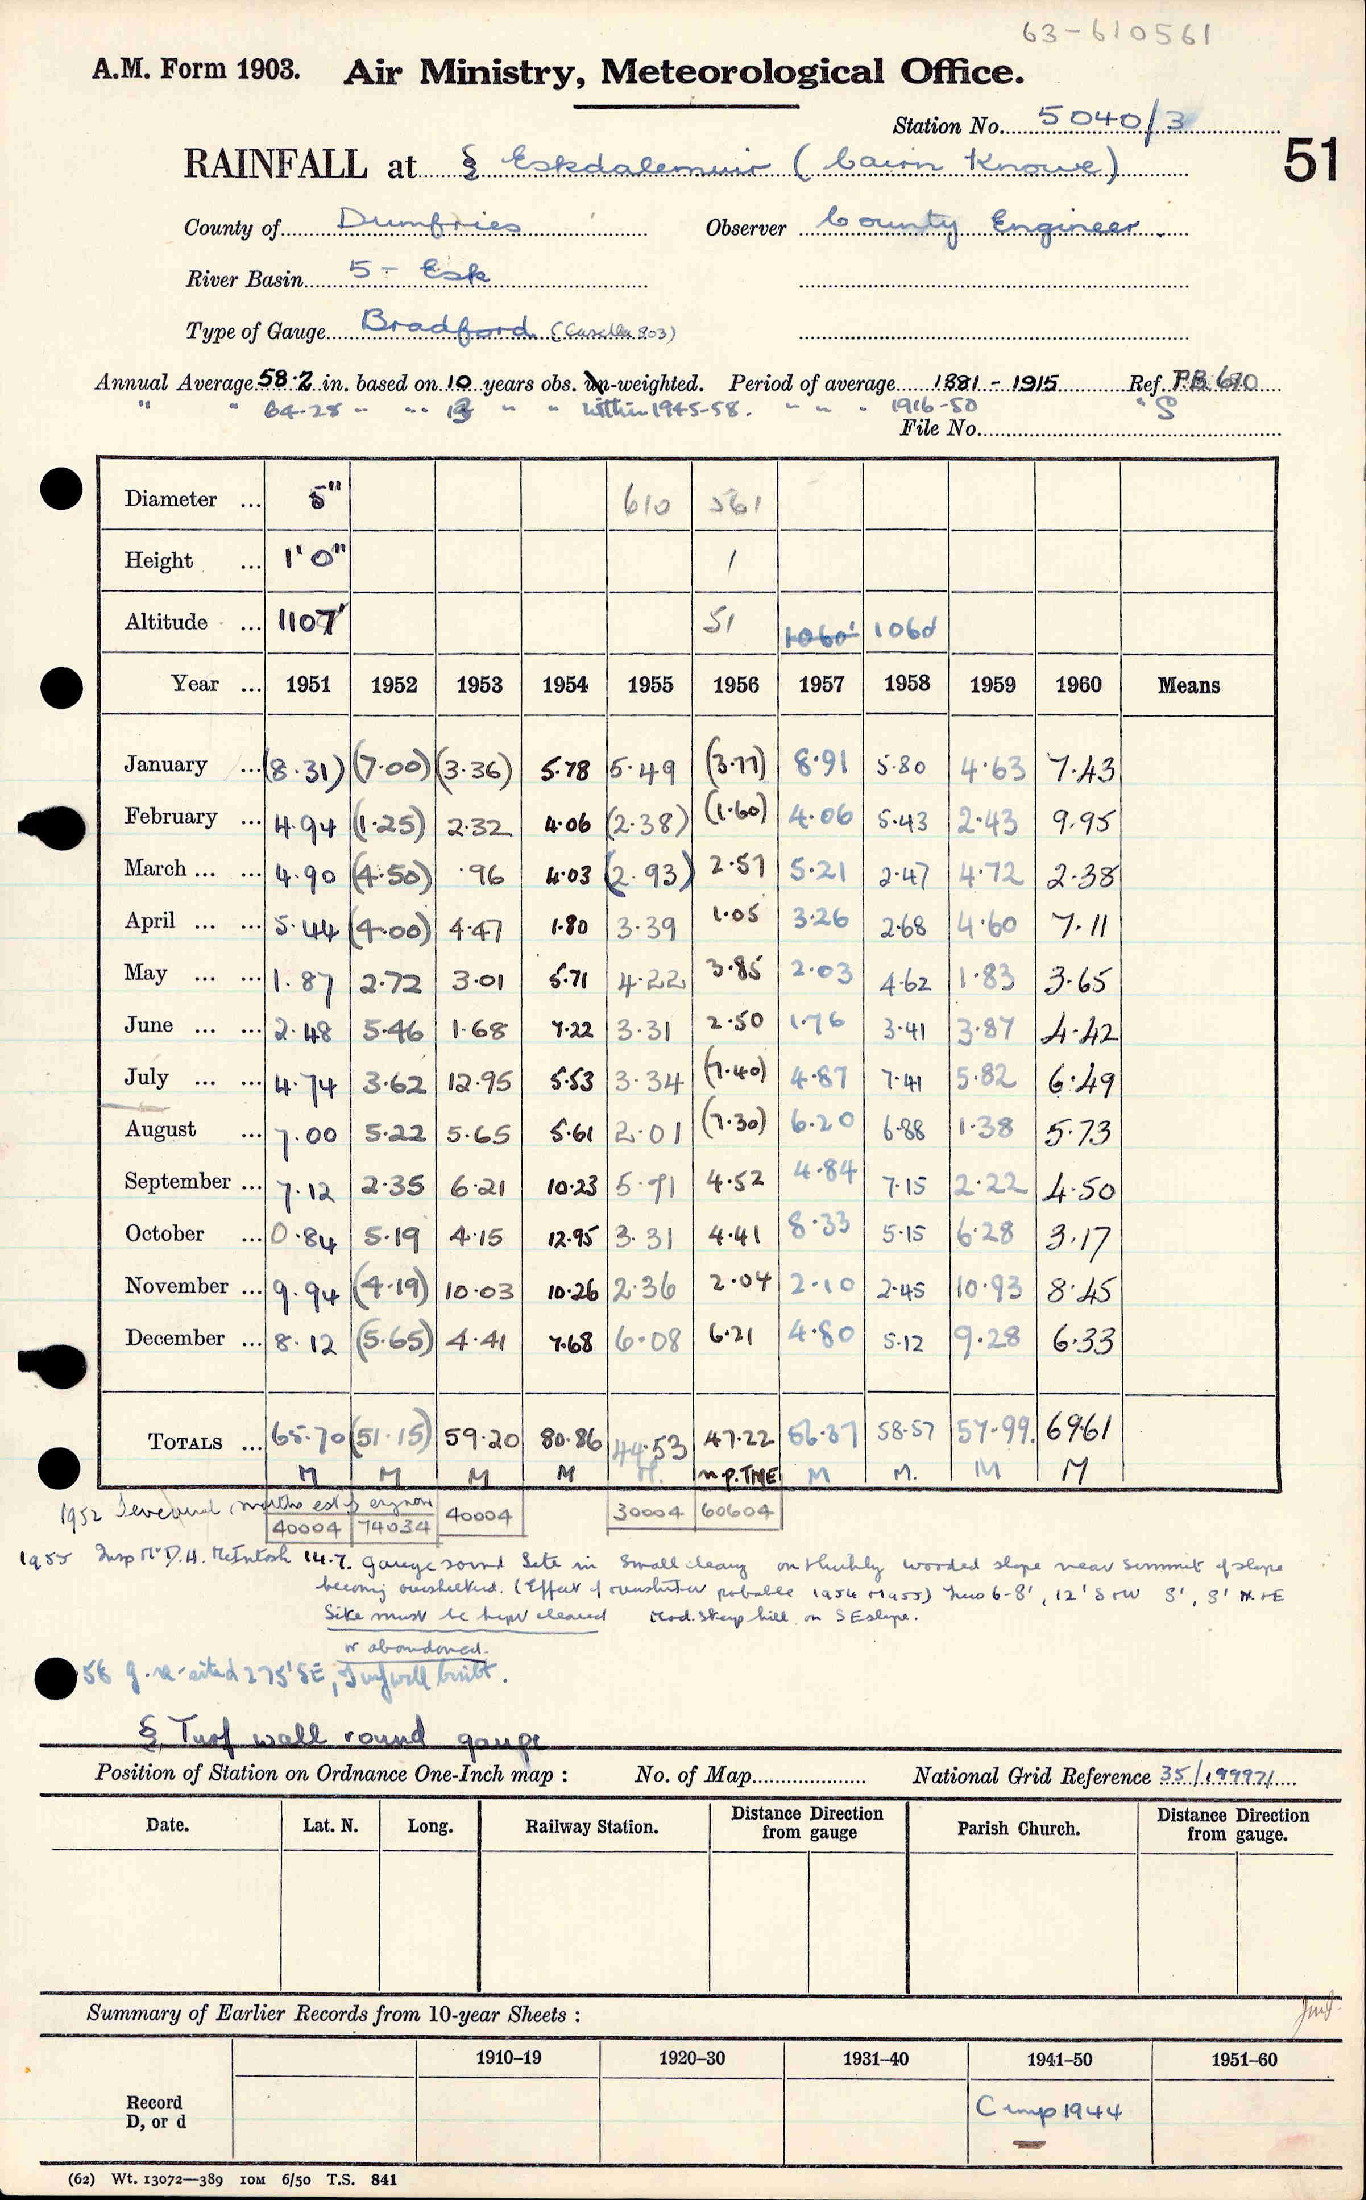 63-610561
A.M. Form 1903. Air Ministry, Meteorological Office.
Station No. 5040/3
RAINFALL at § Eskdalemuir (Cairn Knowe) 51
County of Dumfries Observer County Engineer.
River Basin 5 - Esk
Type of Gauge Bradford (Casella 803)
Annual Average 58.2 in. based on 10 years obs. un-weighted. Period of average 1881 - 1915 Ref. P.B. 670
" " 64.28 " " 13 " " within 1945-58. " " " 1916-50 " S
File No.
Diameter ... 5" 610 561
Height ... 1' 0" 1
Altitude ... 1107' 51 1060' 1060
Year ... 1951 1952 1953 1954 1955 1956 1957 1958 1959 1960 Means
January ... (8.31) (7.00) (3.36) 5.78 5.49 (3.77) 8.91 5.80 4.63 7.43
February ... 4.94 (1.25) 2.32 4.06 (2.38) (1.60) 4.06 5.43 2.43 9.95
March ... ... 4.90 (4.50) .96 4.03 (2.93) 2.57 5.21 2.47 4.72 2.38
April ... ... 5.44 (4.00) 4.47 1.80 3.39 1.05 3.26 2.68 4.60 7.11
May ... ... 1.87 2.72 3.01 5.71 4.22 3.85 2.03 4.62 1.83 3.65
June ... ... 2.48 5.46 1.68 7.22 3.31 2.50 1.76 3.41 3.87 4.42
July ... ... 4.74 3.62 12.95 5.53 3.34 (7.40) 4.87 7.41 5.82 6.49
August ... 7.00 5.22 5.65 5.61 2.01 (7.30) 6.20 6.88 1.38 5.73
September ... 7.12 2.35 6.21 10.23 5.71 4.52 4.84 7.15 2.22 4.50
October ... 0.84 5.19 4.15 12.95 3.31 4.41 8.33 5.15 6.28 3.17
November ... 9.94 (4.19) 10.03 10.26 2.36 2.04 2.10 2.45 10.93 8.45
December ... 8.12 (5.65) 4.41 7.68 6.08 6.21 4.80 5.12 9.28 6.33
TOTALS ... 65.70 (51.15) 59.20 80.86 44.53 47.22 56.37 58.57 57.99 69.61
M M M M M. M M. M M
1952 Several months est by
40004 74034 40004 30004 60604
1955 Insp Mr D.H. McIntosh 14.7. Gauge sound Site in small clearing on thickly wooded slope near summit of slope
becoming oversheltered. (Effect of probable 1954 1955) 6-8', 12' S+W 8', 8' N+E
Site must be kept cleared Mod. steep hill on SE slope.
or abandoned.
56 g. re-sited 275' SE, Turf wall built.
§ Turf wall round gauge
Position of Station on Ordnance One-Inch map : No. of Map National Grid Reference 35/199971
Date. Lat. N. Long. Railway Station. Distance Direction from gauge Parish Church. Distance Direction from gauge.
Summary of Earlier Records from 10-year Sheets :
1910–19 1920–30 1931–40 1941–50 1951–60
Record
D, or d Comp 1944
(62) Wt. 13072—389 10M 6/50 T.S. 841